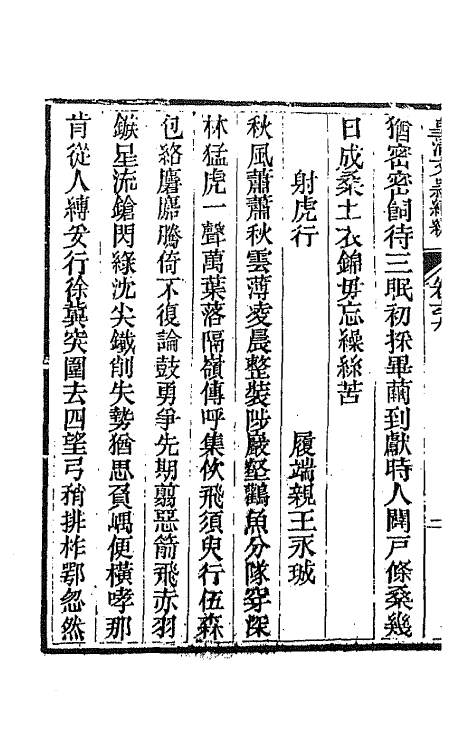 皇清文穎續編 卷六
猶密密飼待三眠初採畢繭到獻時人闢戸條桑幾
日成桑土衣錦毋忘繰絲苦
射虎行 履端親王永珹
秋風蕭蕭秋雲薄凌晨整裝陟巖壑鸛魚分隊穿深
林猛虎一聲萬葉落隔嶺傳呼集佽飛須臾行伍森
包絡麕麚騰倚不復論鼓勇爭先期翦惡箭飛赤羽
鏃星流鎗閃綠沈尖鐵削失勢猶思負嵎便橫哮那
肯從人縛爰行徐冀突圍去四望弓矟排柞鄂忽然